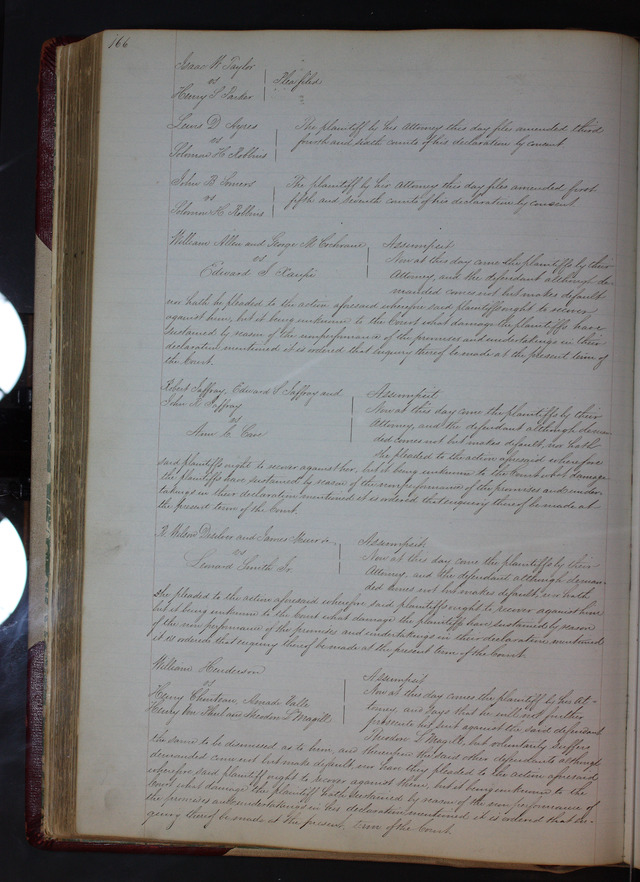 166
Isaac W Taylor
vs
Plea filed
Henry S Parker
Lewis D Ayres
vs
Solomon H Robbins
The plaintiff by his Attorney this day files amended third
fourth and sixth counts of his declaration by consent
John B Somers
vs
Solomon H. Robbins
The plaintiff by his Attorney this day files amended first
fifth and seventh counts of his declaration by consent
William Allen and George M Cochrane
vs
Edward S
Assumpsit
Now at this day come the plaintiffs by their
Attorney, and the defendant although de-
manded comes not but makes default
nor hath he pleaded to the action aforesaid wherefore said plaintiffs ought to recover
against him, but it being unknown to the Court what damage the plaintiffs have
sustained by reason of the nonperformance of the promises and undertakings in their
declaration mentioned it is ordered that enquiry thereof be made at the present term of
the Court.
Robert Jaffray, Edward S Jaffray and
John R Jaffray
vs
Ann C.
Assumpsit
Now at this day come the plaintiffs by their
Attorney, and the defendant although deman
ded comes not but makes default, nor hath
she pleaded to the action aforesaid wherefore
said plaintiffs ought to recover against her, but it being unknown to the what damage
the plaintiffs have sustained by reason of the nonperformance of the promises and under-
takings in their declaration mentioned it is ordered that enquiry thereof be made at
the present term of the Court.
R Wilson Desilver and James
vs
Lenard Smith Sr.
Assumpsit
Now at this day come the plaintiffs by their
Attorney, and the defendant although deman-
ded comes not but makes default nor hath
he pleaded to the action aforesaid wherefore said plaintiffs ought to recover against him
but it being unknown to the Court what damage the plaintiffs have sustained by reason
of the non performance of the promises and undertakings in their declaration mentioned
it is ordered that enquiry thereof be made at the present term of the Court.
William Henderson
vs
Henry Chouteau, Menade Valle
Henry Von Phul and Theodore L Magill
Assumpsit
Now at this day comes the plaintiff by his At-
torney, and says that he will not further
prosecute his suit against the said defendant
Theodore L Magill, but voluntarily suffers
the same to be dismissed as to him, and thereupon the said other defendants although
demanded come not but make default nor have they pleaded to the action aforesaid
wherefore said plaintiff ought to recover against them, but it being unknown to the
Court what damage the plaintiff hath sustained by reason of the non performance of
the promises and undertakings in his declaration mentioned it is ordered that en-
quiry thereof be made at the present term of the Court.